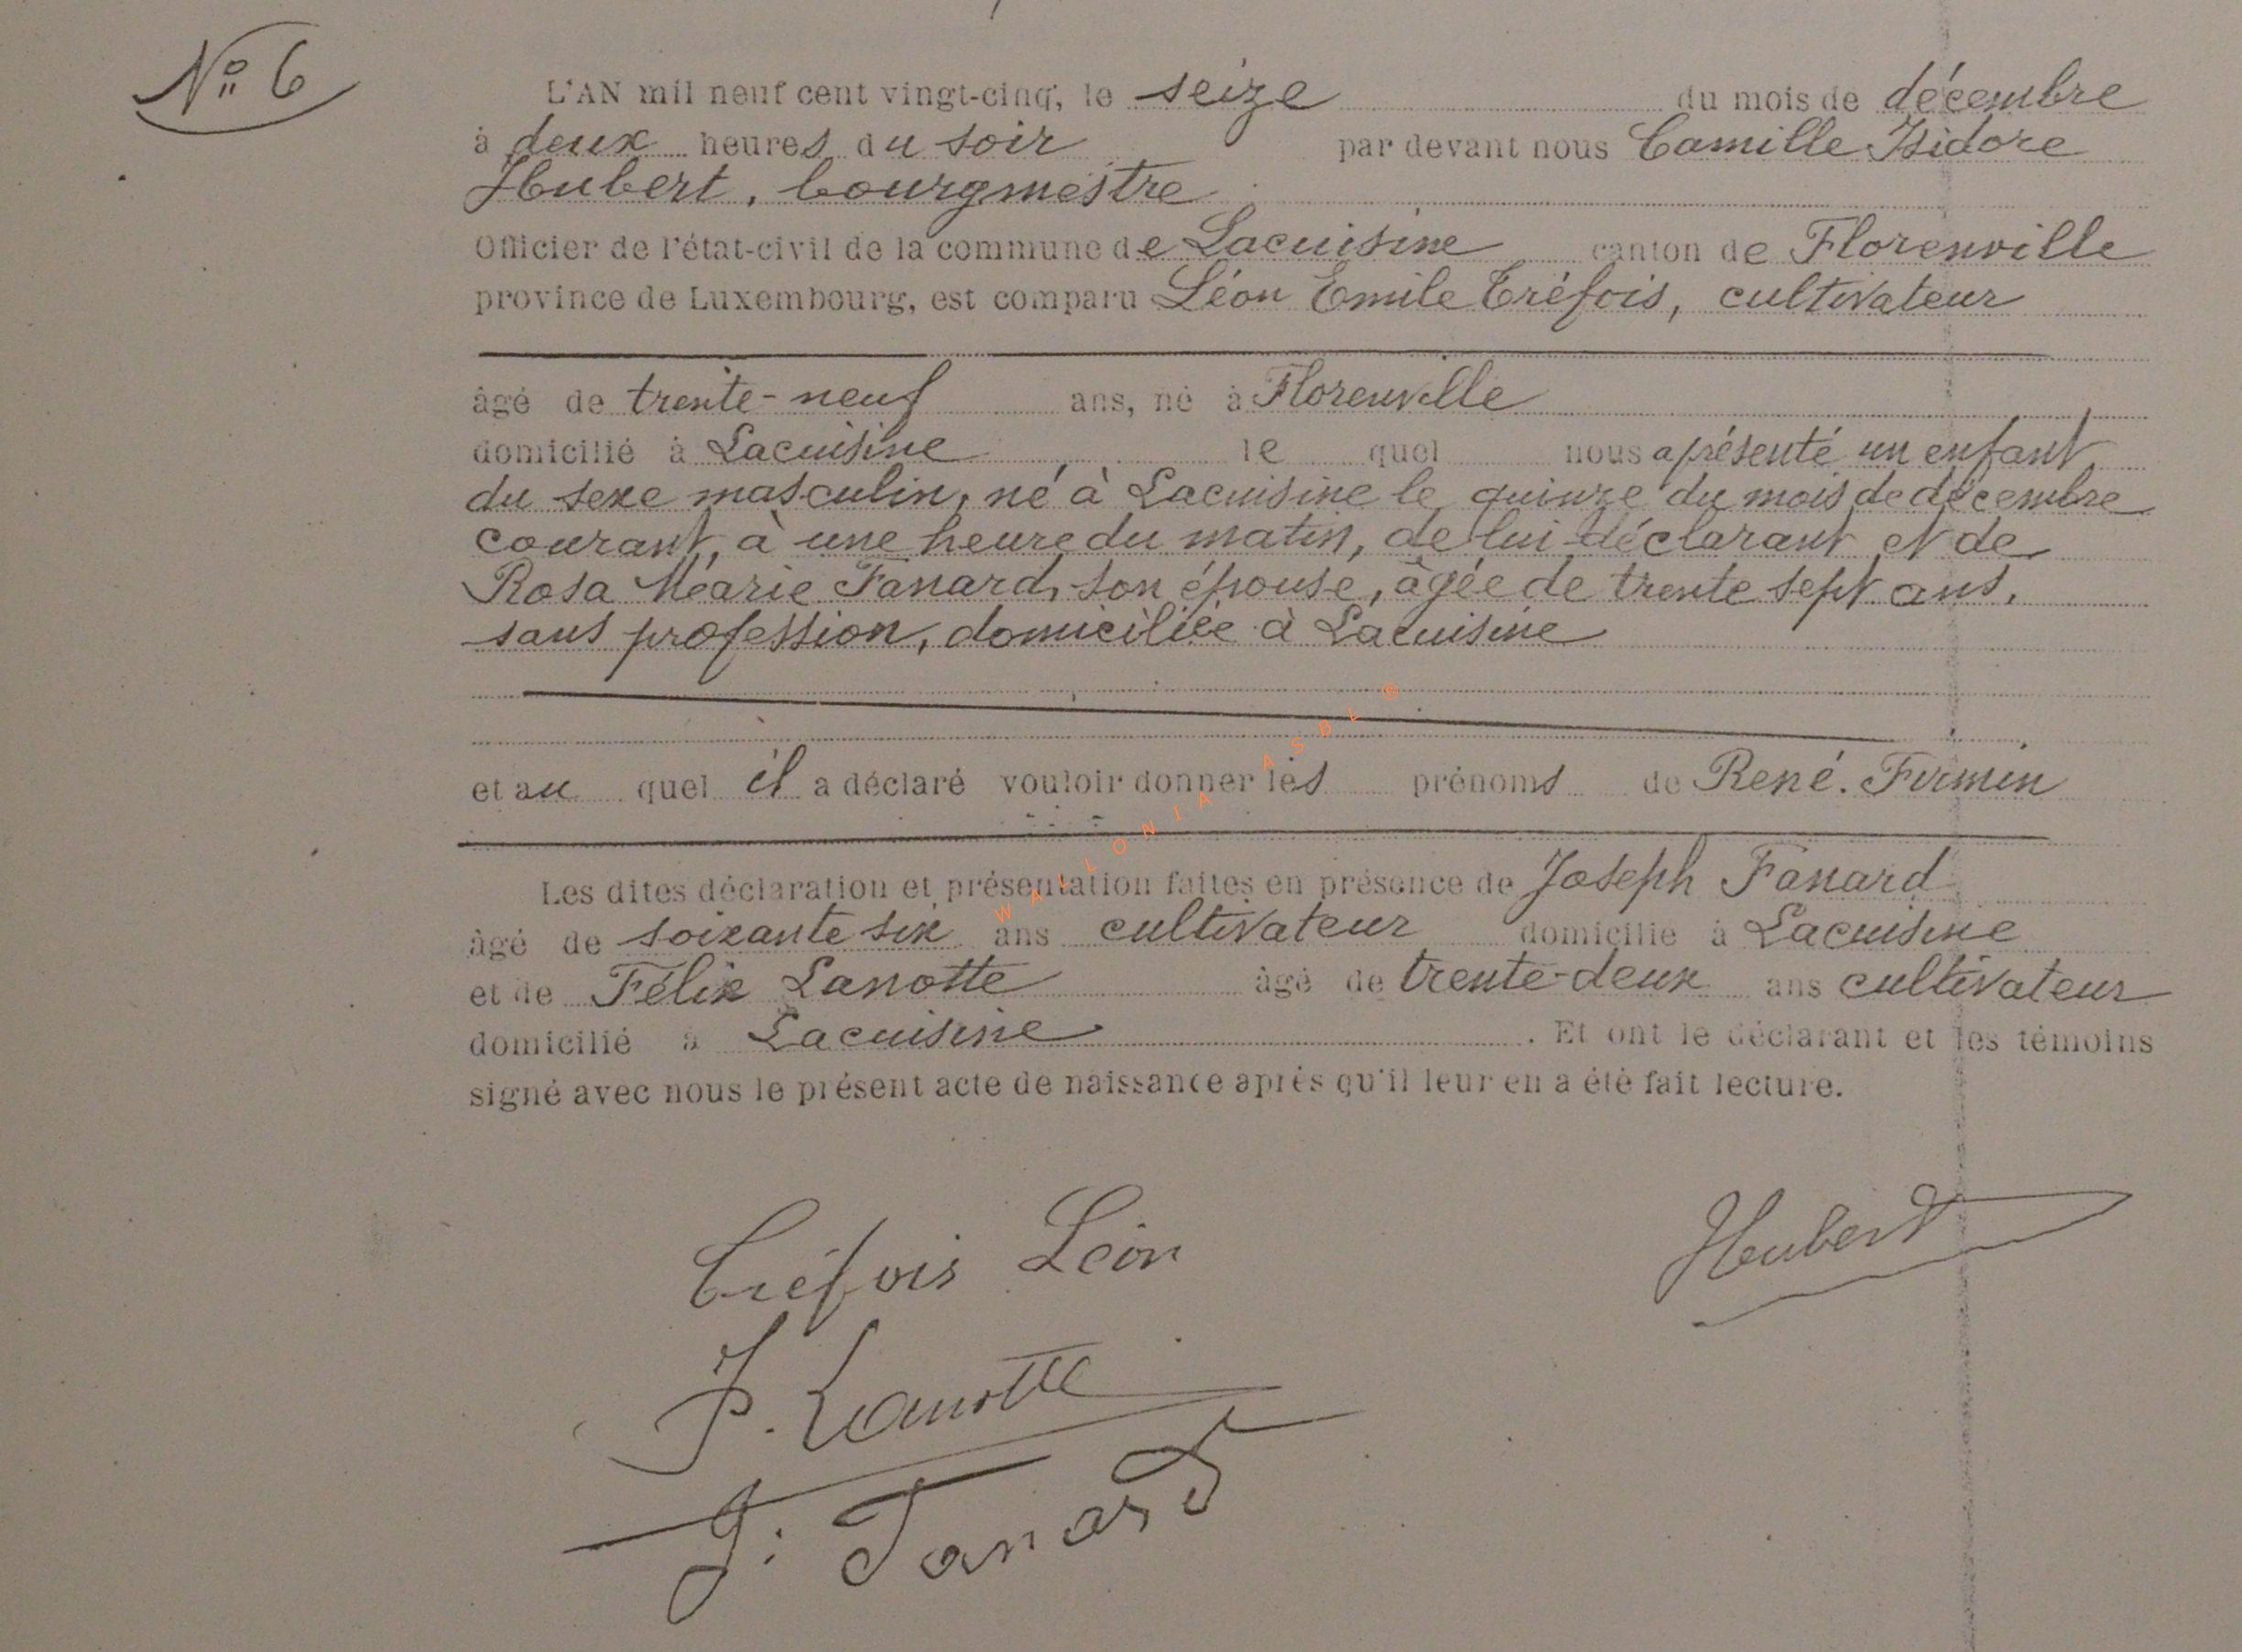 N° 6
L'AN mil neuf cent vingt-cinq, le seize du mois de décembre
à deux heures du soir par devant nous Camille Isidore
Hubert, bourgmestre
Officier de l'état-civil de la commune de Lacuisine canton de Florenville
province de Luxembourg, est comparu Léon Emile Tréfois, cultivateur
âgé de trente-neuf ans, né à Florenville
domicilié à Lacuisine le quel nous a présenté un enfant
du sexe masculin, né à Lacuisine le quinze du mois de décembre
courant, à une heure du matin, de lui déclarant et de
Rosa Marie Fanard, son épouse, âgée de trente sept ans,
sans profession, domiciliée à Lacuisine
et au quel il a déclaré vouloir donner les prénoms de René. Firmin
Les dites déclaration et présentation faites en présence de Joseph Fanard
âgé de soixante six ans cultivateur domicilié à Lacuisine
et de Félix Lanotte âgé de trente-deux ans cultivateur
domicilié à Lacuisine. Et ont le déclarant et les témoins
signé avec nous le présent acte de naissance après qu'il leur en a été fait lecture.
WALLONIA ASBL ©
Tréfois Léon
Hubert
F. Lanotte
J. Fanard